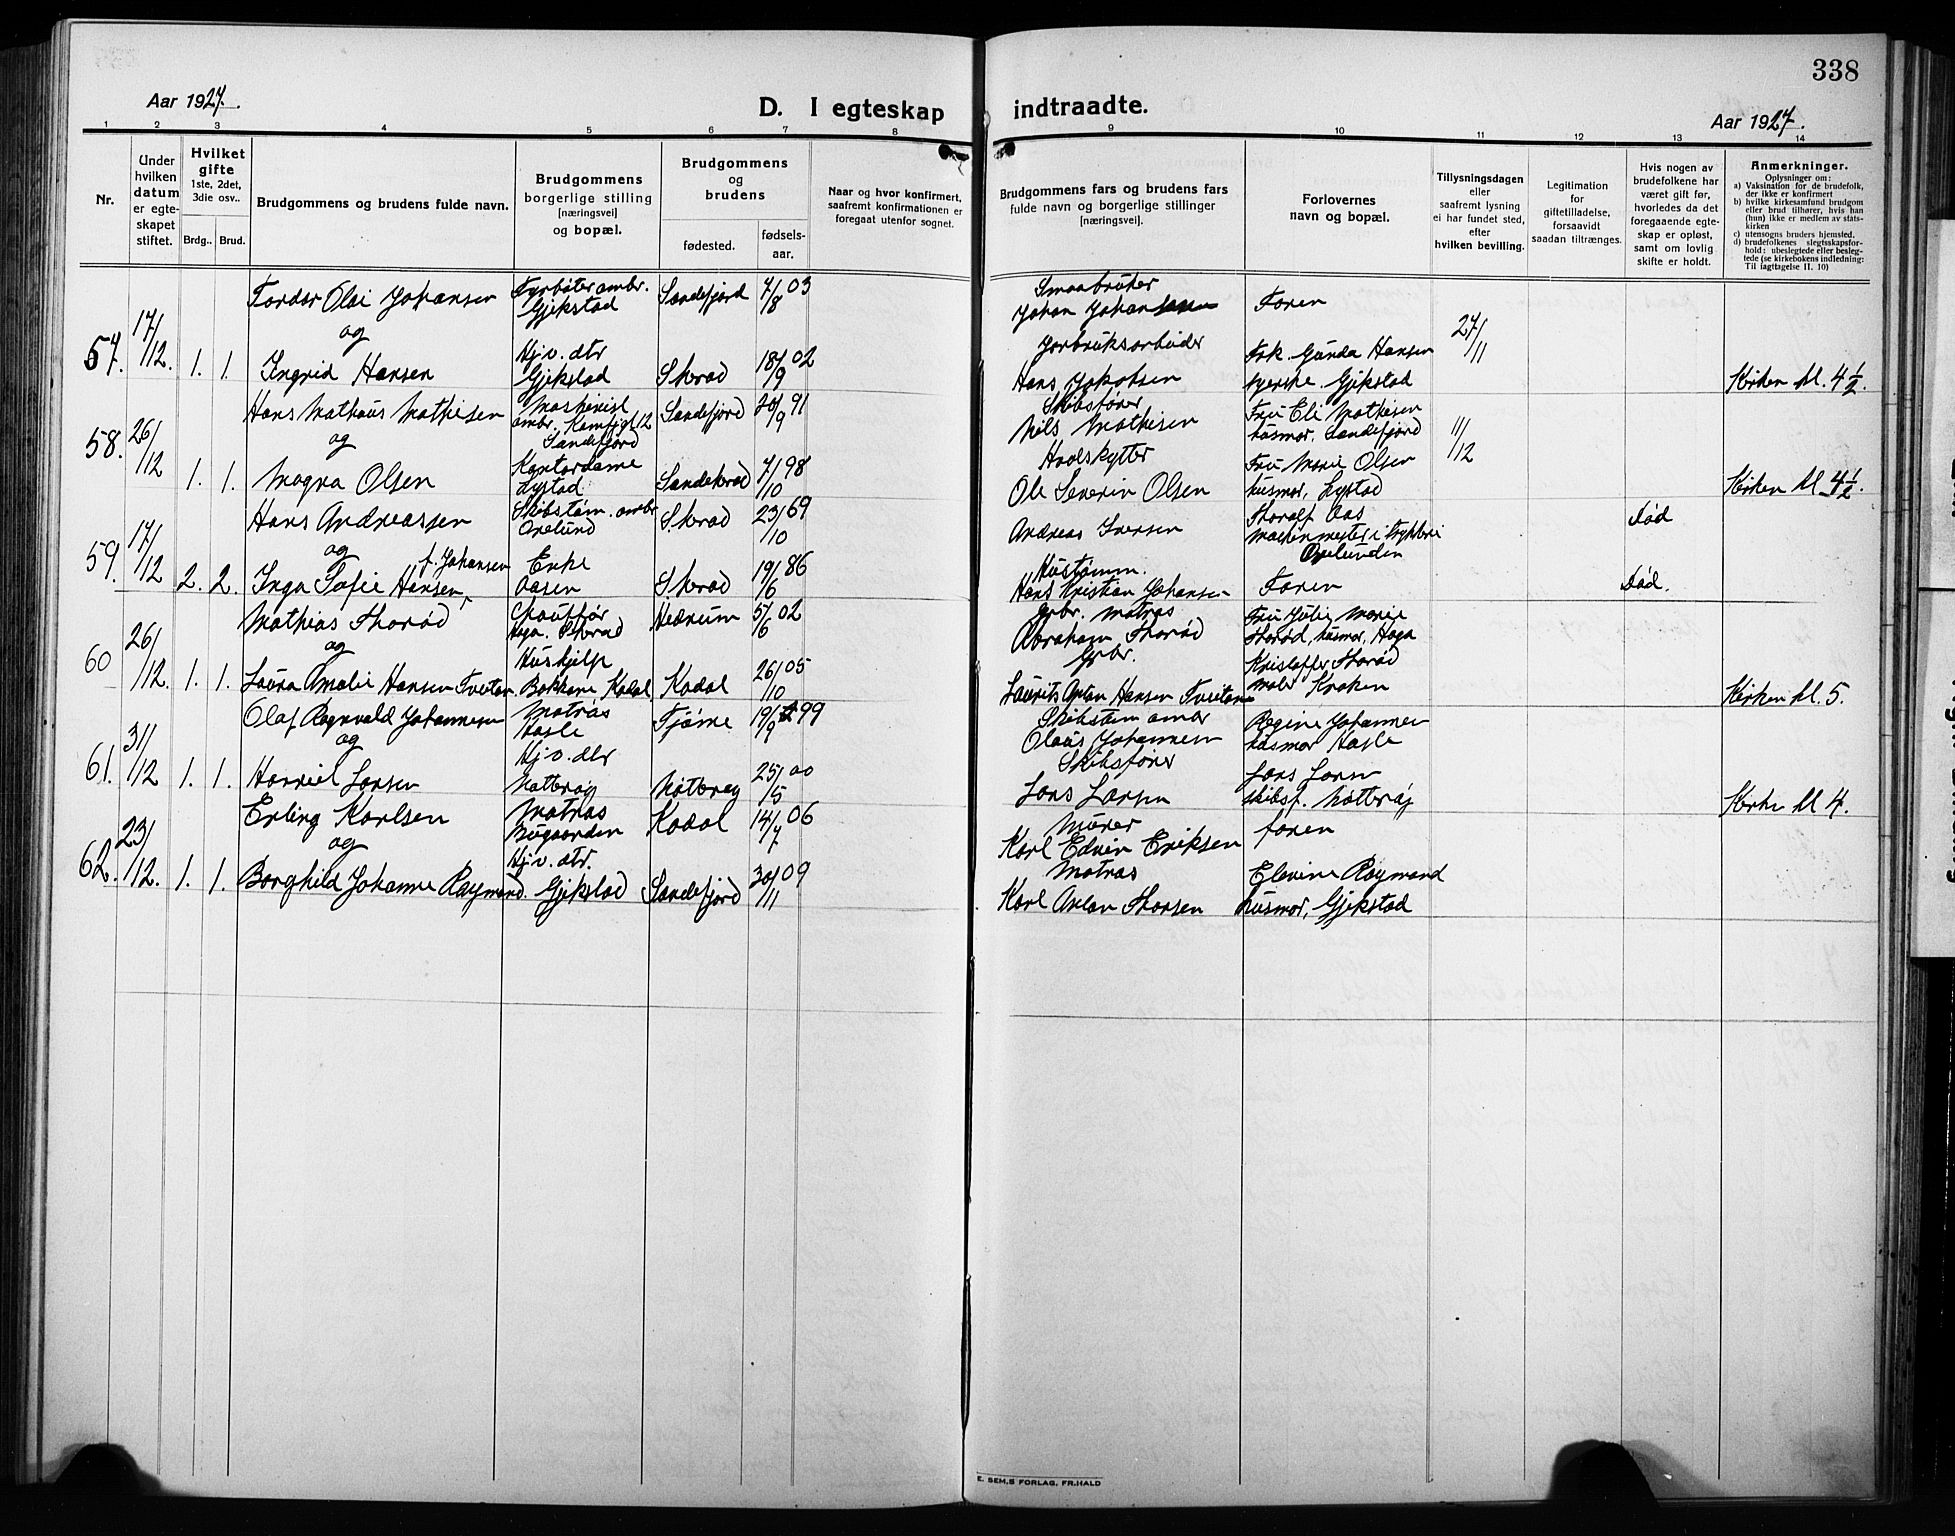 338
Aar 1927.
D. I egteskap indtraadte.
Aar 1927.
1 2 3 4 5 6 7 8 9 10 11 12 13 14
Nr.
Under hvilken datum er egte-skapet stiftet.
Hvilket gifte 1ste, 2det, 3die osv..
Brdg.. Brud.
Brudgommens og brudens fulde navn.
Brudgommens borgerlige stilling [næringsvei] og bopæl.
Brudgommens og brudens
fødested. fødsels-aar.
Naar og hvor konfirmert, saafremt konfirmationen er foregaat utenfor sognet.
Brudgommens fars og brudens fars fulde navn og borgerlige stillinger [næringsvei].
Forlovernes navn og bopæl.
Tillysningsdagen eller saafremt lysning ei har fundet sted, efter hvilken bevilling.
Legitimation for giftetilladelse, forsaavidt saadan tiltrænges.
Hvis nogen av brudefolkene har været gift før, hvorledes da det foregaaende egte-skap er opløst, samt om lovlig skifte er holdt.
Anmerkninger.
Oplysninger om:
a) Vaksination for de brudefolk, der ikke er konfirmert
b) hvilke kirkesamfund brudgom eller brud tilhører, hvis han (hun) ikke er medlem av stats-kirken
c) utensogns bruders hjemsted.
d) brudefolkenes slegtsskapsfor-hold: ubeslegtede eller besleg-tede (se kirkebokens indledning: Til iagttagelse II. 10)
57. 17/12. 1. 1.
Tordar Olai Johansen
og
Ingrid Hansen
Fyrbøter ombr. Gjekstad
Hj.v. dtr Gjekstad
Sandefjord 7/8 03
Skrad 18/9 02
Smaabruker
Johan Johansen
Jorbruksarbeider
Hans Jakobsen
Faren
Frk. Gunda Hansen
syerske. Gjekstad
27/11
Kirken kl. 4 ½.
58. 26/12 1. 1.
Hans Mathæus Mathisen
og
Magna Olsen
Maskinist
Sandefjord
Kontordame
Lystad
Sandefjord 20/9 91
Sandeherad 7/10 98
Skibsfører
Nils Mathisen
Hvalskytter
Ole Severin Olsen
Fru Eli Mathisen
husmor. Sandefjord
Fru Marie Olsen
husmor, Lystad
11/12
Kirken kl. 4½.
59. 17/12 2. 2.
Hans Andreassen
og
Inga Sofie Hansen, f. Johansen
Skibstøm. ombr
Orelund
Enke
Aasen
Skrad 23/10 69
Skrad 19/6 86
Andreas Iversen
Hustømm.
Hans Kristian Johansen
Thoralf Aas
Maskinmester i trykkeri
Orelunden
Faren
Død
Død.
60 26/12. 1. 1.
Mathias Thorød
og
Laura Amalie Hansen Tveitan
Chauffør
Haga. Skrad
Hushjelp
Bakkane Kodal
Hedrum 5/6 02
Kodal 26/10 05
Grbr. Matros
Abraham Thorød
Grbr.
Laurits Anton Hansen Tveitane
Fru Julie Marie
Thorød, husmor, Haga
Kristoffer Thorød
maler Kraken
Kirken kl. 5.
61. 31/12 1. 1.
Olaf Ragnvald Johannesen
og
Harriet Larsen
Matros
Hasle
Hj.v. dtr
Nøtterøy
Tjøme 19/9 99
Nøtterøy 25/5 00
Skibstøm ombr
Olaus Johannesen
Skibsfører
Lars Larsen
Regine Johannesen
husmor Hasle
Lars Larsen
skibsf. Nøtterøy
Kirken kl 4.
62. 23/12. 1. 1.
Erling Karlsen
og
Borghild Johanne Raymond.
Matros
Bugaarden
Hj.v. dtr.
Gjekstad
Kodal 14/7 06
Sandefjord 30/11 09
Murer
Karl Edvin Eriksen
Matros
Karl Anton Thorsen
faren
Elevine Raymond
husmor, Gjekstad
E. SEM.S FORLAG, FR.HALD